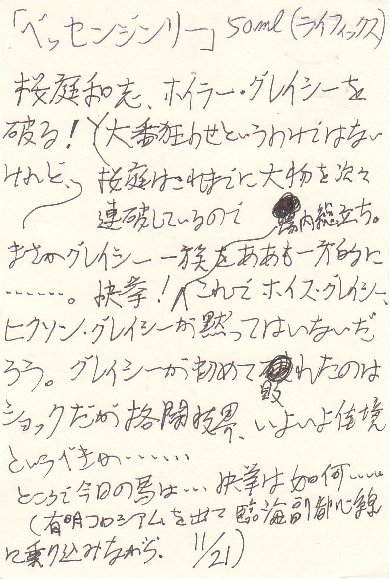 「ベッセンジンリー」50ml(ライフィックス)
桜庭和志、ホイラー・グレイシーを
破る!(大番狂わせというわけではない
けれど、桜庭はこれまでに大物を次々
連破しているので 場内総立ち。
まさかグレイシー一族をああも一方的に
……。快挙!(これでホイス・グレイシー
ヒクソン・グレイシーが黙ってはいないだ
ろう。グレイシーが初めて敗れたのは
ショックだが格闘技界、いよいよ佳境
というべきか……
ところで今日の馬は…快挙は如何……
(有明コロシアムを出て臨海副都心線
に乗り込みながら、11/21)